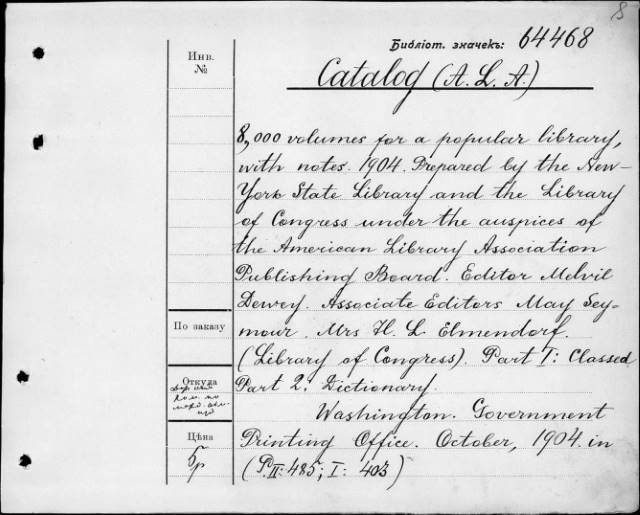 8
Библіот. значекъ: 64468
Инв.
№
Catalog (A. L. A.)
8,000 volumes for a popular library,
with notes. 1904. Prepared by the New-
York State Library and the Library
of Congress under the auspices of
the American Library Association
Publishing Board. Editor Melvil
Dewey. Associate Editors May Sey-
mour. Mrs H. L Elmendorf.
(Library of Congress). Part I: Classed
Part 2. Dictionary.
Washington. Government
Printing Office. October, 1904. in
(P. II: 485; I: 403)
По заказу
Откуда
Цѣна
5р